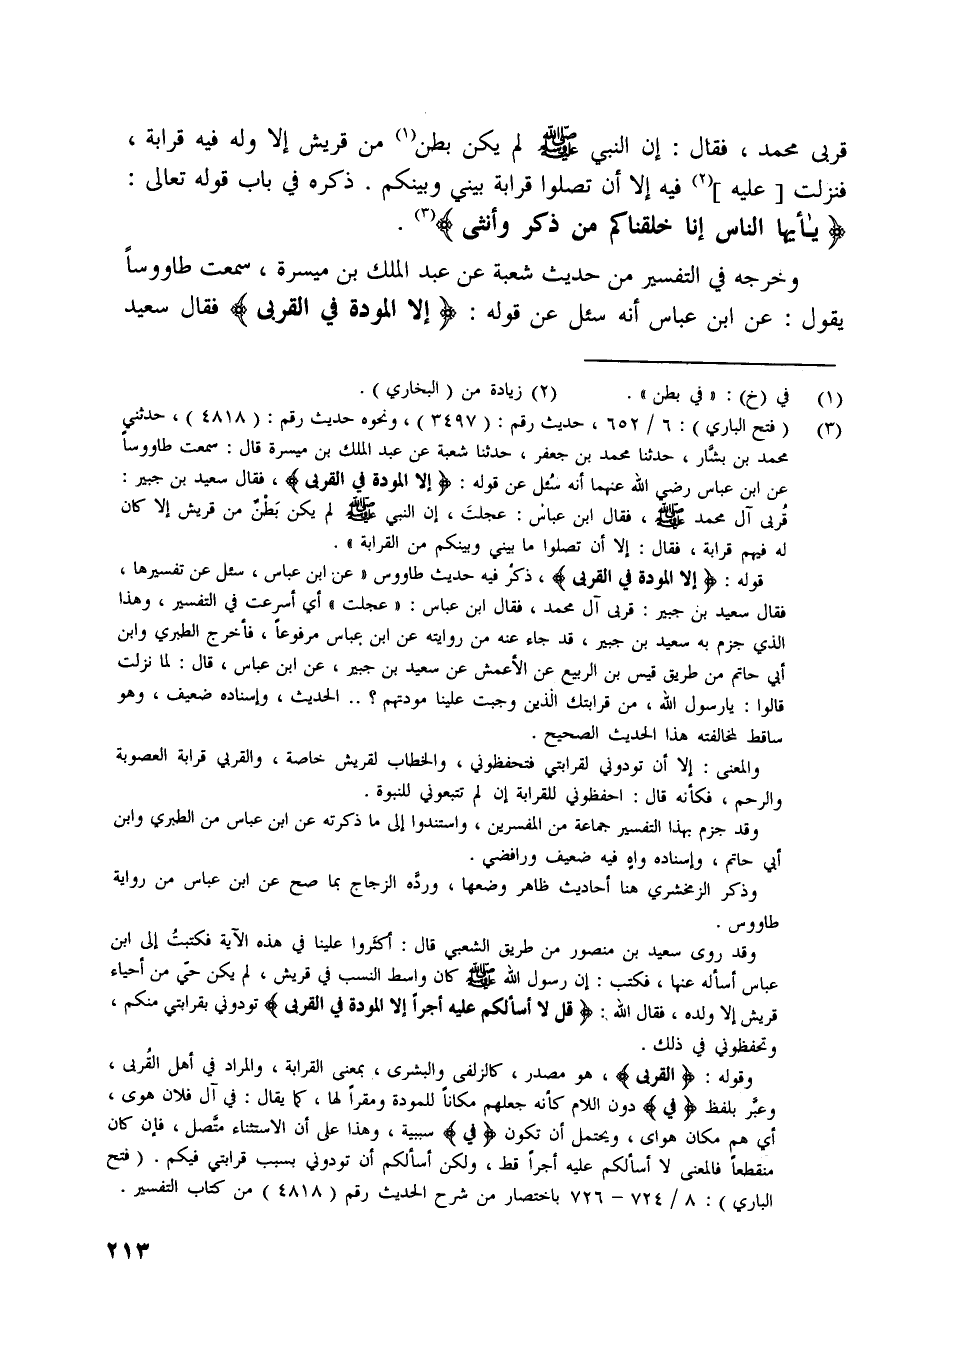 قربى محمد ، فقال : إن النبي ﷺ لم يكن بطن(١) من قريش إلا وله فيه قرابة ،
فنزلت [ عليه ](٢) فيه إلا أن تصلوا قرابة بيني وبينكم . ذكره في باب قوله تعالى :
﴿ يٰأيها الناس إنا خلقناكم من ذكر وأنثى ﴾(٣) .
وخرجه في التفسير من حديث شعبة عن عبد الملك بن ميسرة ، سمعت طاووساً
يقول : عن ابن عباس أنه سئل عن قوله : ﴿ إلا المودة في القربى ﴾ فقال سعيد
(١) في (خ) : « في بطن » . (٢) زيادة من ( البخاري ) .
(٣) ( فتح الباري ) : ٦ / ٦٥٢ ، حديث رقم : ( ٣٤٩٧ ) ، ونحوه حديث رقم : ( ٤٨١٨ ) ، حدثني
محمد بن بشَّار ، حدثنا محمد بن جعفر ، حدثنا شعبة عن عبد الملك بن ميسرة قال : سمعت طاووساً
عن ابن عباس رضي الله عنهما أنه سُئل عن قوله : ﴿ إلا المودة في القربى ﴾ ، فقال سعيد بن جبير :
قُربى آل محمد ﷺ ، فقال ابن عباس : عجلتَ ، إن النبي ﷺ لم يكن بَطْنٌ من قريش إلا كان
له فيهم قرابة ، فقال : إلا أن تصلوا ما بيني وبينكم من القرابة » .
قوله : ﴿ إلا المودة في القربى ﴾ ، ذكرْ فيه حديث طاووس « عن ابن عباس ، سئل عن تفسيرها ،
فقال سعيد بن جبير : قربى آل محمد ، فقال ابن عباس : « عجلت » أي أسرعت في التفسير ، وهذا
الذي جزم به سعيد بن جبير ، قد جاء عنه من روايته عن ابن عباس مرفوعاً ، فأخرج الطبري وابن
أبي حاتم من طريق قيس بن الربيع عن الأعمش عن سعيد بن جبير ، عن ابن عباس ، قال : لما نزلت
قالوا : يارسول الله ، من قرابتك الّذين وجبت علينا مودتهم ؟ .. الحديث ، وإسناده ضعيف ، وهو
ساقط لمخالفته هذا الحديث الصحيح .
والمعنى : إلا أن تودوني لقرابتي فتحفظوني ، والخطاب لقريش خاصة ، والقربي قرابة العصوبة
والرحم ، فكأنه قال : احفظوني للقرابة إن لم تتبعوني للنبوة .
وقد جزم بهذا التفسير جماعة من المفسرين ، واستندوا إلى ما ذكرته عن ابن عباس من الطبري وابن
أبي حاتم ، وإسناده واهٍ فيه ضعيف ورافضي .
وذكر الزمخشري هنا أحاديث ظاهر وضعها ، وردَّه الزجاج بما صح عن ابن عباس من رواية
طاووس .
وقد روى سعيد بن منصور من طريق الشعبي قال : أكثَروا علينا في هذه الآية فكتبتُ إلى ابن
عباس أسأله عنها ، فكتب : إن رسول الله ﷺ كان واسط النسب في قريش ، لم يكن حيّ من أحياء
قريش إلا ولده ، فقال الله : ﴿ قل لا أسألكم عليه أجراً إلا المودة في القربى ﴾ تودوني بقرابتي منكم ،
وتحفظوني في ذلك .
وقوله : ﴿ القربى ﴾ ، هو مصدر ، كالزلفى والبشرى ، بمعنى القرابة ، والمراد في أهل القُربى ،
وعبَّر بلفظ ﴿ في ﴾ دون اللام كأنه جعلهم مكاناً للمودة ومقراً لها ، كما يقال : في آل فلان هوى ،
أي هم مكان هواى ، ويحتمل أن تكون ﴿ في ﴾ سببية ، وهذا على أن الاستثناء متَّصل ، فإن كان
منقطعاً فالمعنى لا أسألكم عليه أجراً قط ، ولكن أسألكم أن تودوني بسبب قرابتي فيكم . ( فتح
الباري ) : ٨ / ٧٢٤ – ٧٢٦ باختصار من شرح الحديث رقم ( ٤٨١٨ ) من كتاب التفسير .
٢١٣